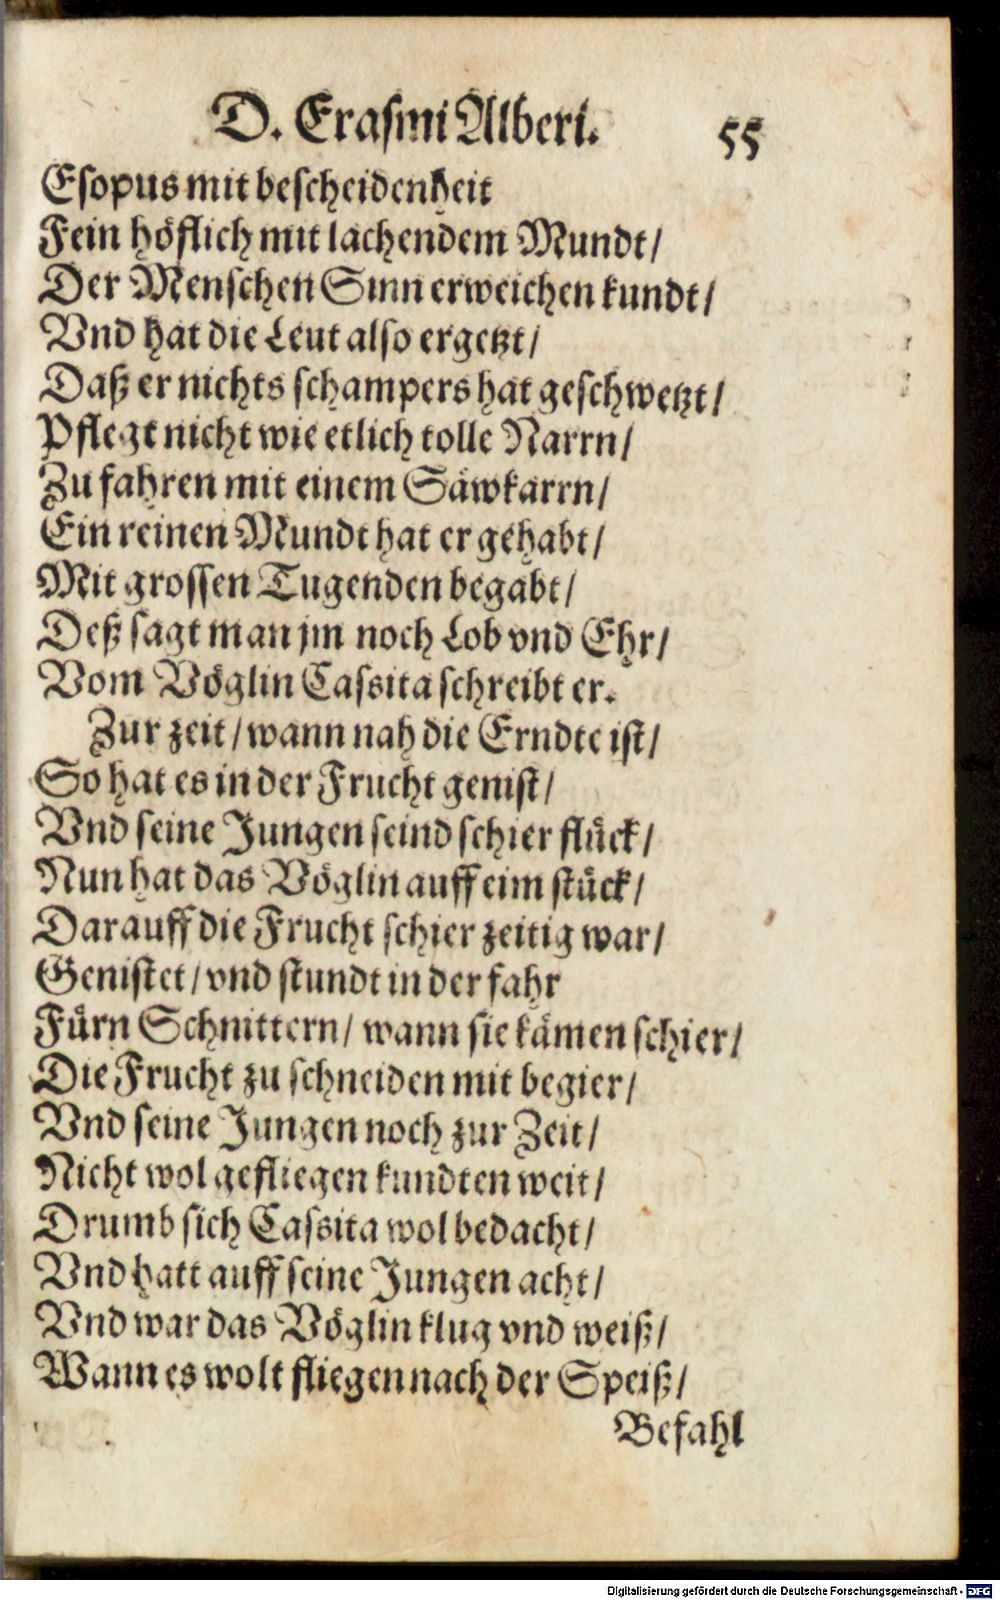 D. Erasmi Alberi. 55
Esopus mit bescheidenheit
Fein höflich mit lachendem Mundt/
Der Menschen Sinn erweichen kundt/
Vnd hat die Leut also ergetzt/
Daß er nichts schampers hat geschwetzt/
Pflegt nicht wie etlich tolle Narrn/
Zu fahren mit einem Säwkarrn/
Ein reinen Mundt hat er gehabt/
Mit grossen Tugenden begabt/
Deß sagt man jm noch Lob vnd Ehr/
Vom Vöglin Cassita schreibt er.
Zur zeit/ wann nah die Erndte ist/
So hat es in der Frucht genist/
Vnd seine Jungen seind schier flück/
Nun hat das Vöglin auff eim stück/
Darauff die Frucht schier zeitig war/
Genistet/ vnd stundt in der fahr
Fürn Schnittern/ wann sie kämen schier/
Die Frucht zu schneiden mit begier/
Vnd seine Jungen noch zur Zeit/
Nicht wol gefliegen kundten weit/
Drumb sich Cassita wol bedacht/
Vnd hatt auff seine Jungen acht/
Vnd war das Vöglin klug vnd weiß/
Wann es wolt fliegen nach der Speiß/
Befahl
Digitalisierung gefördert durch die Deutsche Forschungsgemeinschaft - DFG